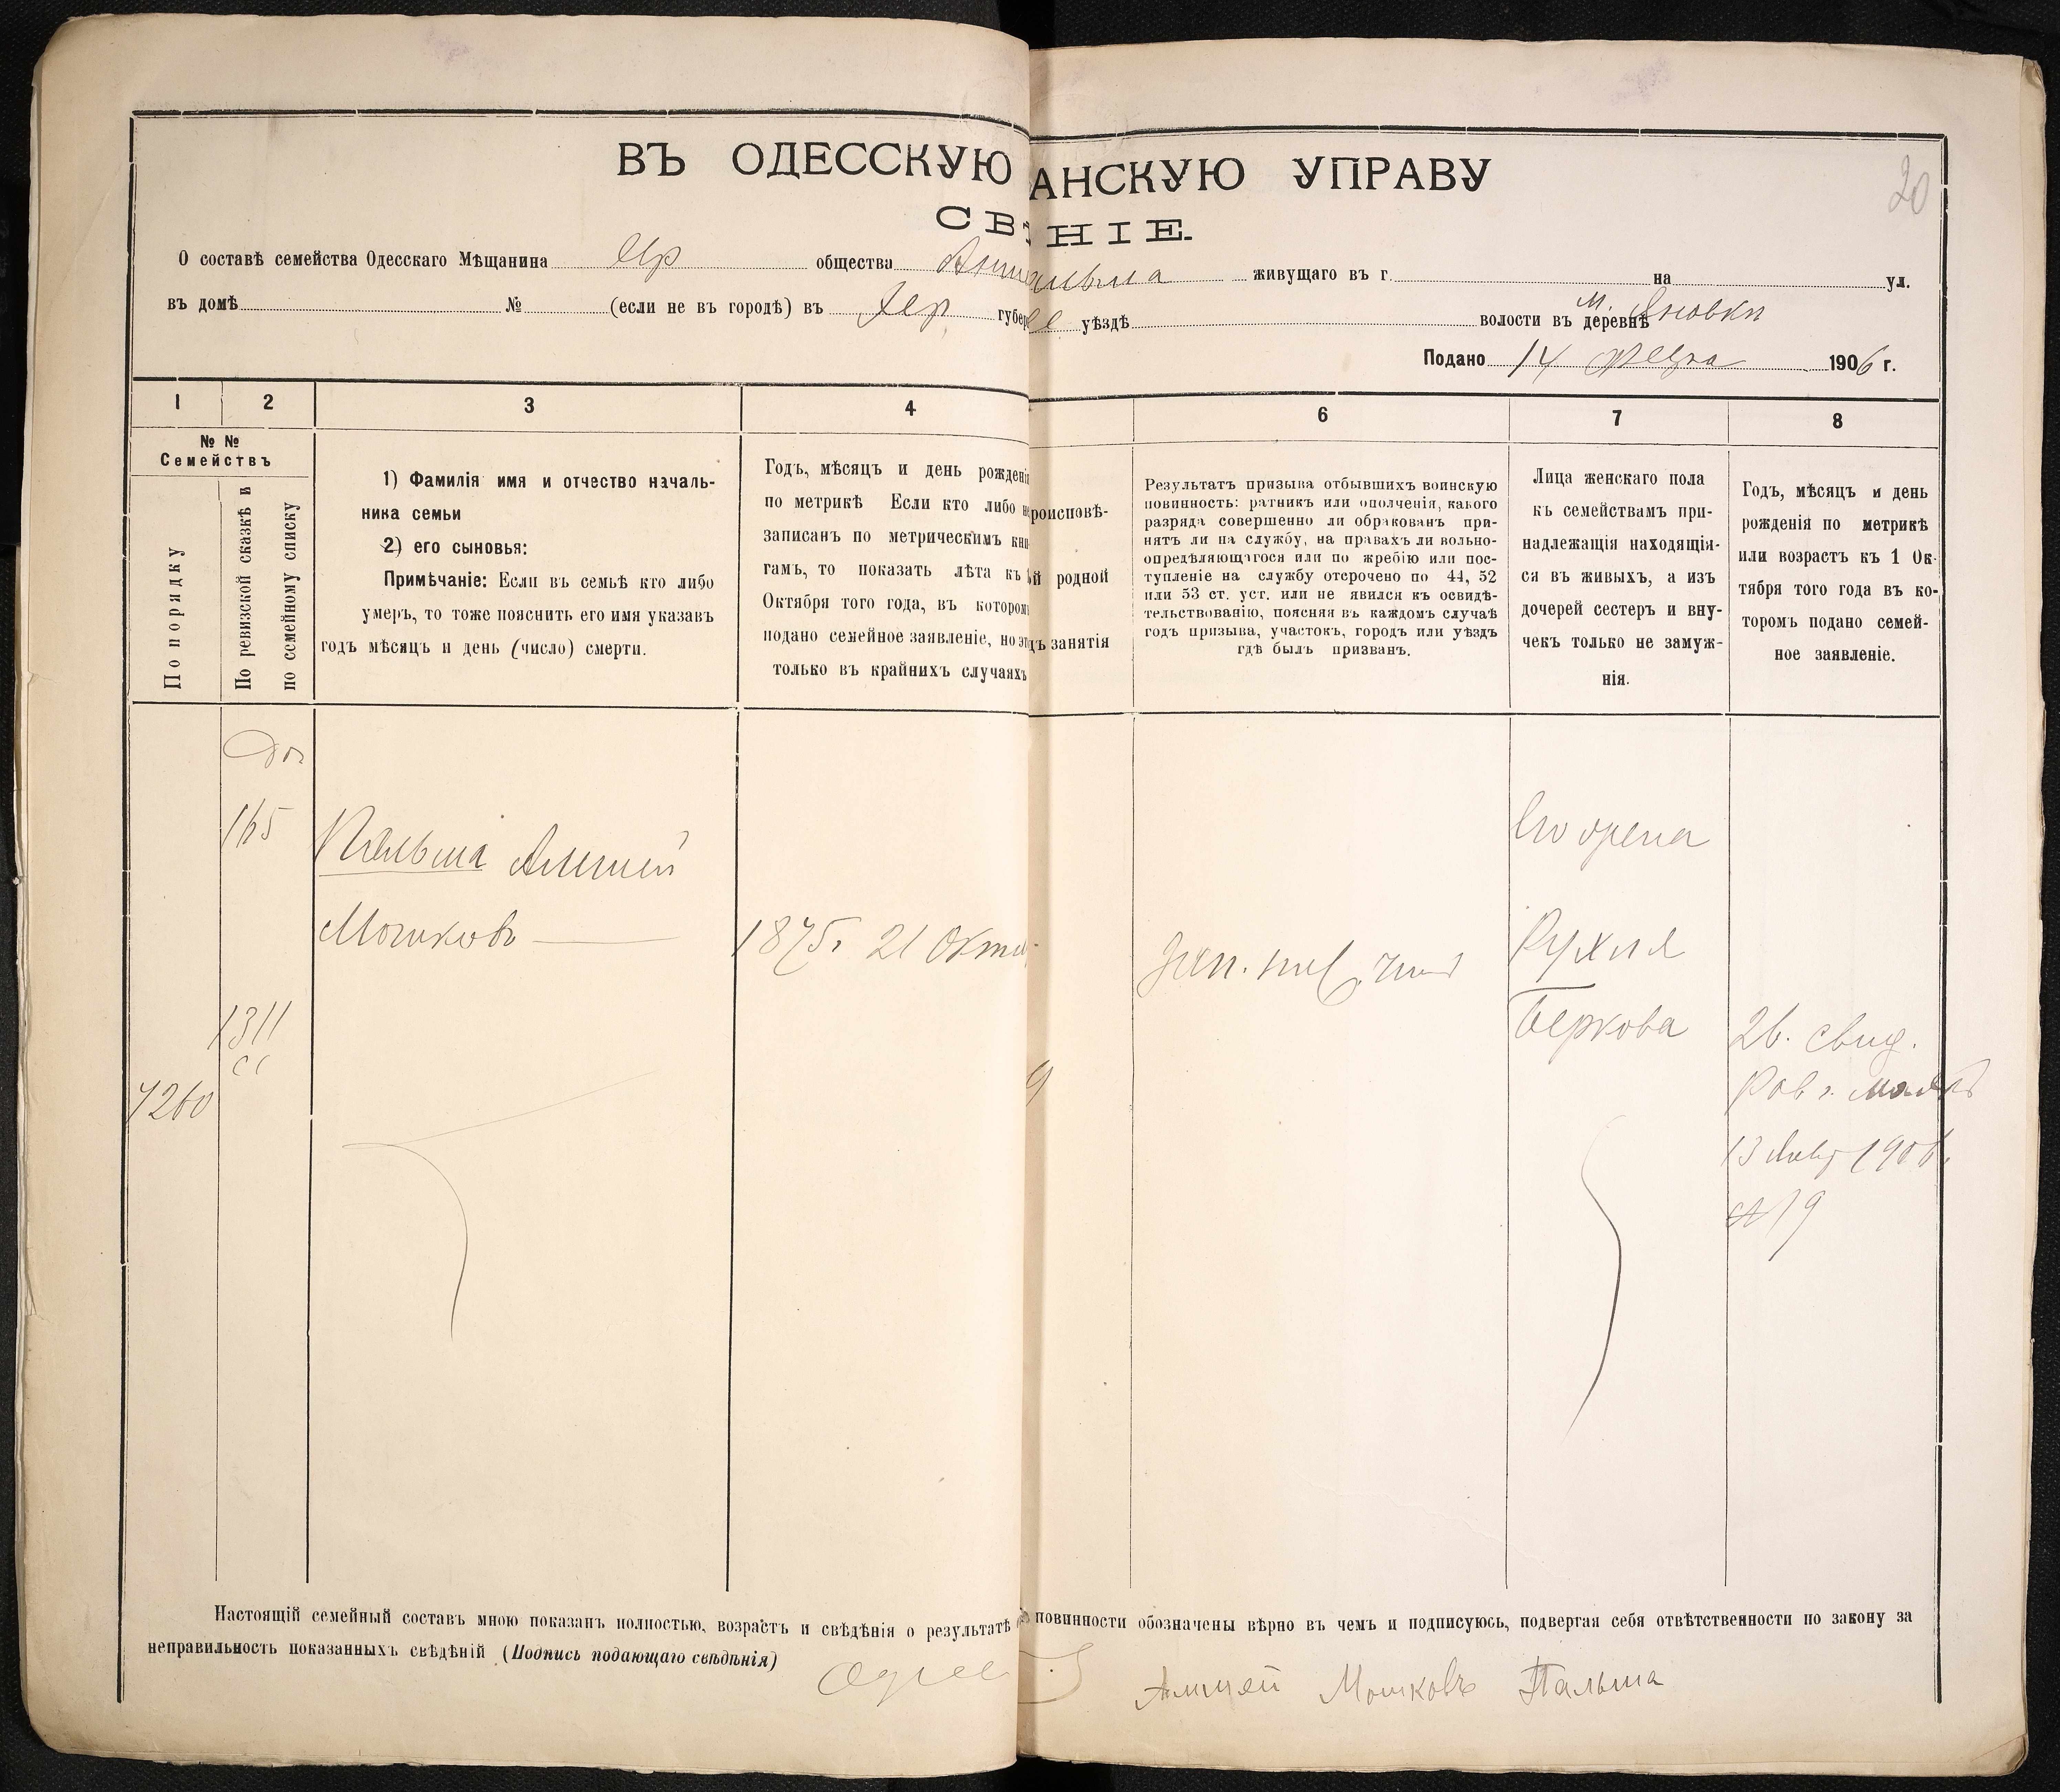 20
ВЪ ОДЕССКУЮ АНСКУЮ УПРАВУ
СВѢ НІЕ.
О составѣ семейства Одесскаго Мѣщанина общества живущаго въ г. на ул.
въ домѣ № (если не въ городѣ) въ Хер губер уѣздѣ волости въ деревнѣ м. Яновки
Подано 14 1906 г.
1 2 3 4 6 7 8
№ №
Семействъ
По порядку
По ревизской сказкѣ и
по семейному списку
1) Фамилія имя и отчество началь-
ника семьи
2) его сыновья:
Примѣчаніе: Если въ семьѣ кто либо
умеръ, то тоже пояснить его имя указавъ
годъ мѣсяцъ и день (число) смерти.
Годъ, мѣсяцъ и день рожденія
по метрикѣ Если кто либо не
записанъ по метрическимъ кни-
гамъ, то показать лѣта къ 1
Октября того года, въ которомъ
подано семейное заявленіе, но это
только въ крайнихъ случаяхъ
роисповѣ-
й родной
дъ занятія
Результатъ призыва отбывшихъ воинскую
повинность: ратникъ или ополченія, какого
разряда совершенно ли обракованъ при-
нятъ ли на службу, на правахъ ли вольно-
опредѣляющагося или по жребію или пос-
тупленіе на службу отсрочено по 44, 52
или 53 ст. уст. или не явился къ освидѣ-
тельствованію, поясняя въ каждомъ случаѣ
годъ призыва, участокъ, городъ или уѣздъ
гдѣ былъ призванъ.
Лица женскаго пола
къ семействамъ при-
надлежащія находящія-
ся въ живыхъ, а изъ
дочерей сестеръ и вну-
чекъ только не замуж-
нія.
Годъ, мѣсяцъ и день
рожденія по метрикѣ
или возрастъ къ 1 Ок-
тября того года въ ко-
торомъ подано семей-
ное заявленіе.
165
Пальша Алтеръ
Мошковъ
1875г 21 Октя
Рухля
Беркова
1311
7260
26. свид.
13 Янв 1906.
№ 19
Настоящій семейный составъ мною показанъ полностью, возрастъ и свѣдѣнія о результатѣ повинности обозначены вѣрно въ чемъ и подписуюсь, подвергая себя отвѣтственности по закону за
неправильность показанныхъ свѣдѣній (Подпись подающаго свѣдѣнія)
Мошковъ Пальша